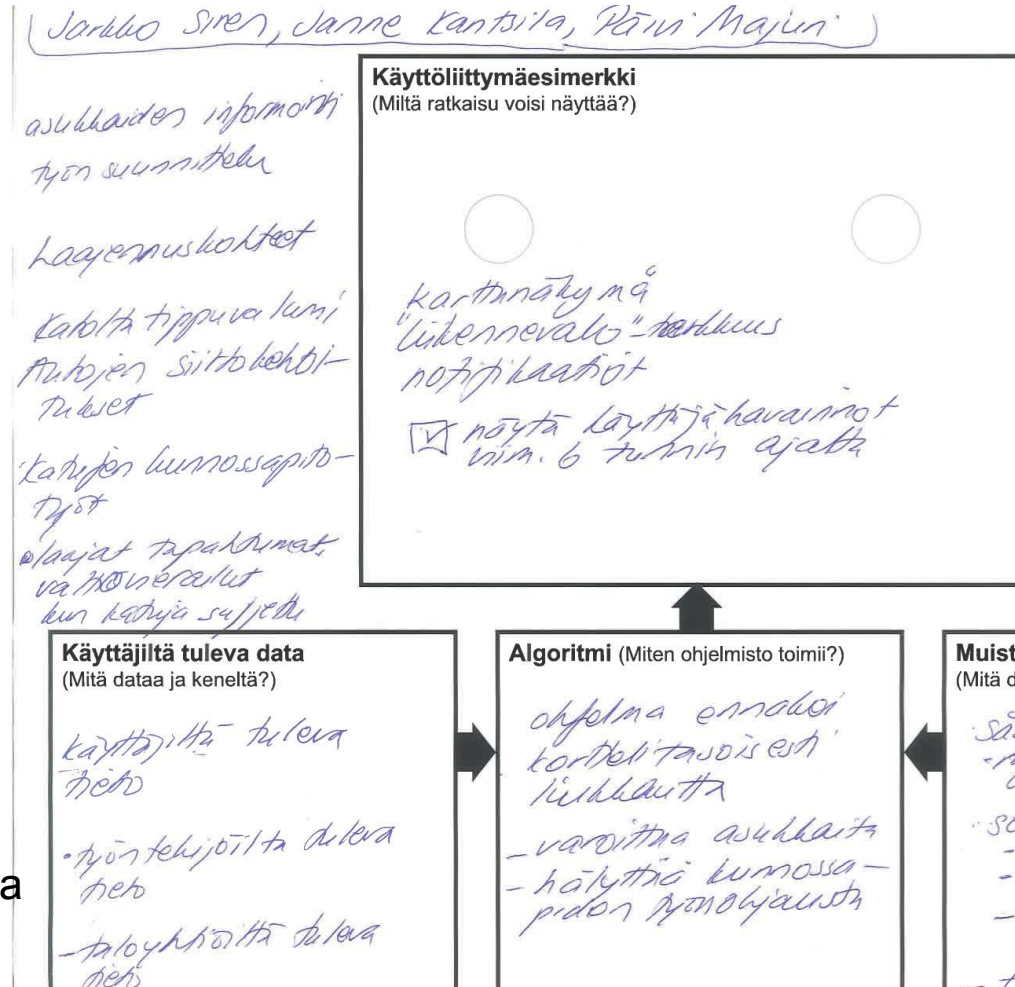 Jarkko Siren, Janne Kantsila, Päivi Majuri
asukkaiden informointi
työn suunnittelu
Laajennuskohteet
Katolta tippuva lumi
Autojen siirtokehoi-
tukset
Katujen kunnossapito-
työt
laajat tapahtumat,
valtiovierailut
kun katuja suljettu
Käyttöliittymäesimerkki
(Miltä ratkaisu voisi näyttää?)
Karttanäkymä
"liikennevalo"-tarkkuus
notifikaatiot
näytä käyttäjähavainnot
viim. 6 tunnin ajalta
Käyttäjiltä tuleva data
(Mitä dataa ja keneltä?)
käyttäjiltä tuleva
tieto
• työntekijöiltä tuleva
tieto
- taloyhtiöiltä tuleva
tieto
a
Algoritmi (Miten ohjelmisto toimii?)
ohjelma ennakoi
korttelitasoisesti
liukkautta
- varoittaa asukkaita
- hälyttää kunnossa-
pidon työnohjausta
Muist
(Mitä d